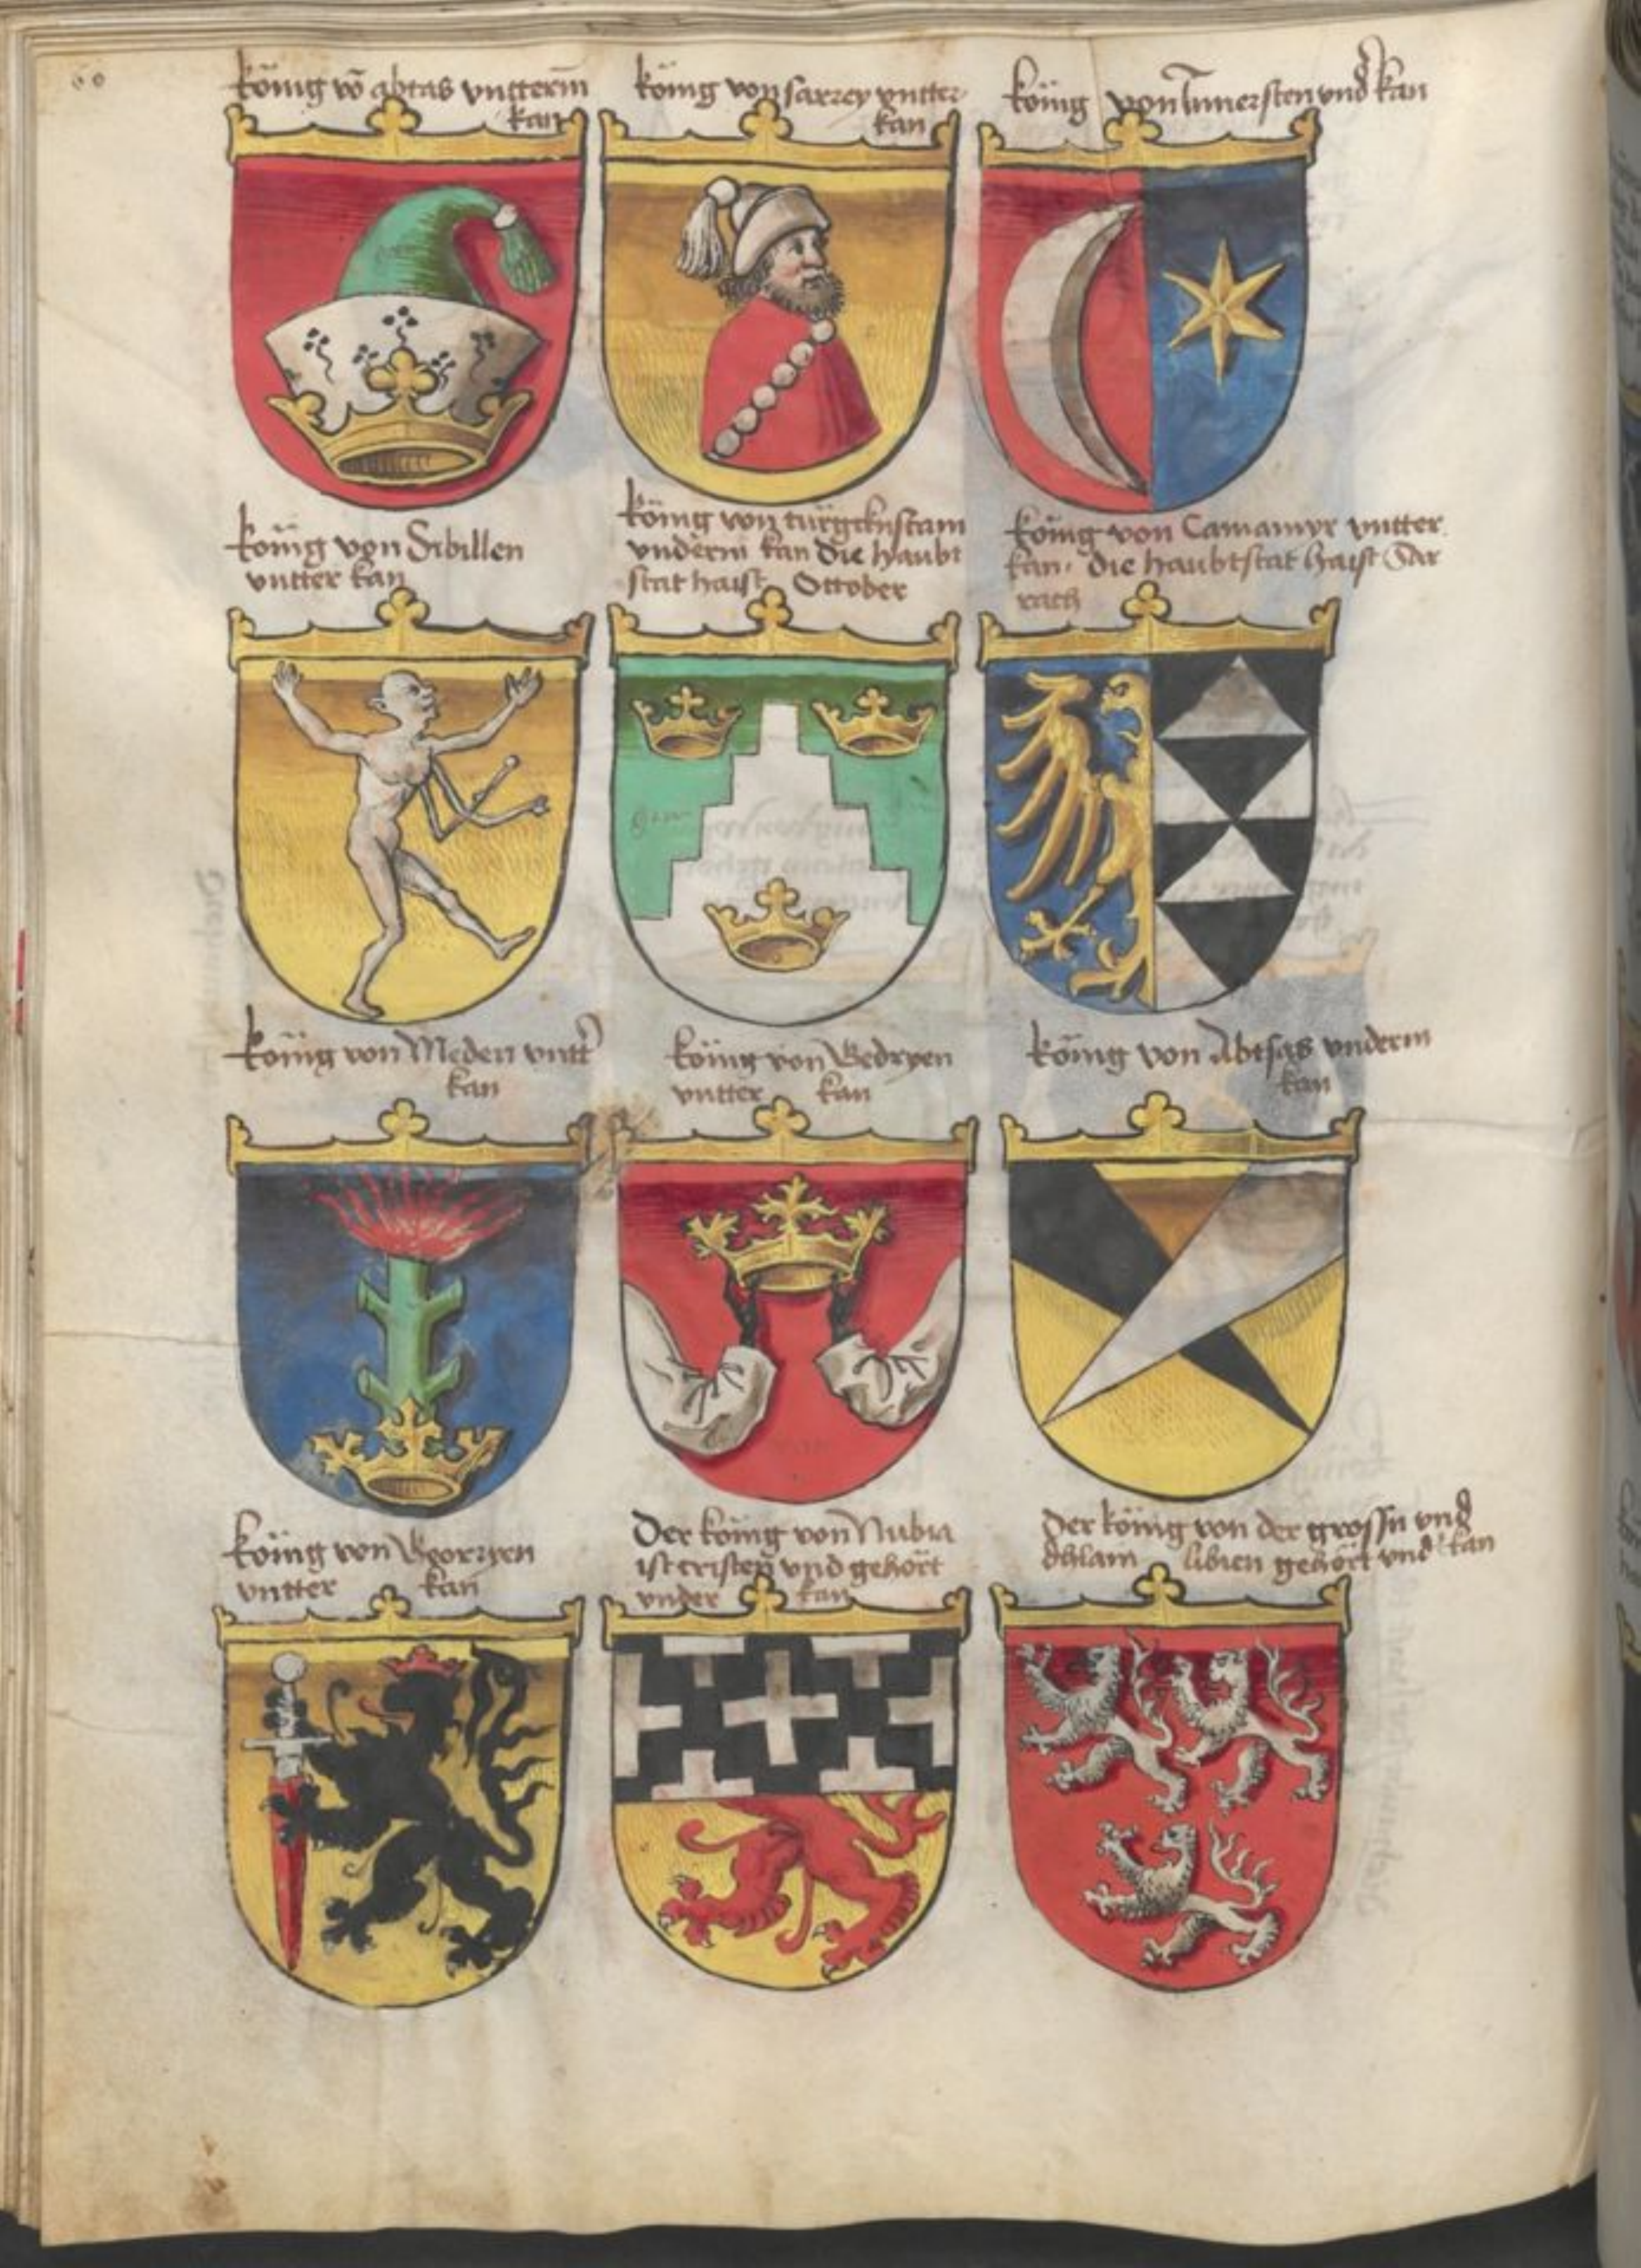 60
König vō abtas vntterm
kan
König von sarrey vntter
kan
König von Innersten vnd kan
König von Sibillen
vntter kan
König von türgckhstam
vnderm kan die haubt
stat haist Ottober
König von Camamyr vntter
kan. die haubtstat haist Sar
rach
König von Meden vntt
kan
König von Bedryen
vntter kan
König von Abtsas vnderm
kan
König von
vntter kan
Der König von Nubia
ist cristen vnd gehört
vnder kan
Der König von der grossn vnd
libien gehört vnd kan